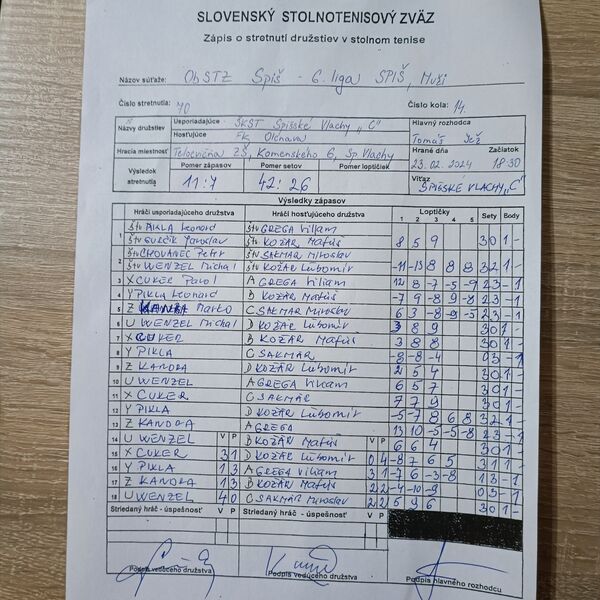 SLOVENSKÝ STOLNOTENISOVÝ ZVÄZ
Zápis o stretnutí družstiev v stolnom tenise
Názov súťaže: ObSTZ Spiš - 6. liga SPIŠ, Muži
Číslo stretnutia: 70 Číslo kola: 14.
Názvy družstiev Usporiadajúce ŠKST Spišské Vlachy "C" Hlavný rozhodca
Hosťujúce FK Olcnava Tomáš
Hracia miestnosť Telocvičňa ZŠ, Komenského 6, Sp. Vlachy Hrané dňa Začiatok
23.02.2024 18:30
Výsledok stretnutia Pomer zápasov Pomer setov Pomer loptičiek Víťaz
11:7 42:26 SPIŠSKÉ VLACHY "C"
Výsledky zápasov
Hráči usporiadajúceho družstva Hráči hosťujúceho družstva Loptičky Sety Body
1 2 3 4 5
1 Štv PIKLA Leonard Štv GREGA Viliam
Štv GURČÍK Jaroslav Štv KOŽÁR Matúš 8 5 9 3 0 1 -
2 Štv CHOVANEC Peter Štv SAKMÁR Miroslav
Štv WENZEL Michal Štv KOŽÁR Ľubomír -11 -13 8 8 8 3 2 1 -
3 X CUKER Pavol A GREGA Viliam 12 8 -7 -5 -9 2 3 - 1
4 Y PIKLA Leonard B KOŽÁR Matúš -7 9 -8 9 -8 2 3 - 1
5 Z KANDRA Marko C SAKMÁR Miroslav 6 3 -8 -9 -5 2 3 - 1
6 U WENZEL Michal D KOŽÁR Ľubomír 3 8 9 3 0 1 -
7 X CUKER B KOŽÁR Matúš 3 8 8 3 0 1 -
8 Y PIKLA C SAKMÁR -8 -8 -4 0 3 - 1
9 Z KANDRA D KOŽÁR Ľubomír 2 5 4 3 0 1 -
10 U WENZEL A GREGA Viliam 6 5 7 3 0 1 -
11 X CUKER C SAKMÁR 7 7 9 3 0 1 -
12 Y PIKLA D KOŽÁR Ľubomír -5 -7 8 6 8 3 2 1 -
13 Z KANDRA A GREGA 13 10 -5 -5 -8 2 3 - 1
14 U WENZEL V P B KOŽÁR Matúš V P 6 6 4 3 0 1 -
15 X CUKER 3 1 D KOŽÁR Ľubomír 0 4 -8 7 6 5 3 1 1 -
16 Y PIKLA 1 3 A GREGA Viliam 3 1 -7 6 -3 -8 1 3 - 1
17 Z KANDRA 1 3 B KOŽÁR Matúš 2 2 -4 -10 -9 0 3 - 1
18 U WENZEL 4 0 C SAKMÁR Miroslav 2 2 5 9 6 3 0 1 -
Striedaný hráč - úspešnosť V P Striedaný hráč - úspešnosť V P
Podpis vedúceho družstva Podpis vedúceho družstva Podpis hlavného rozhodcu